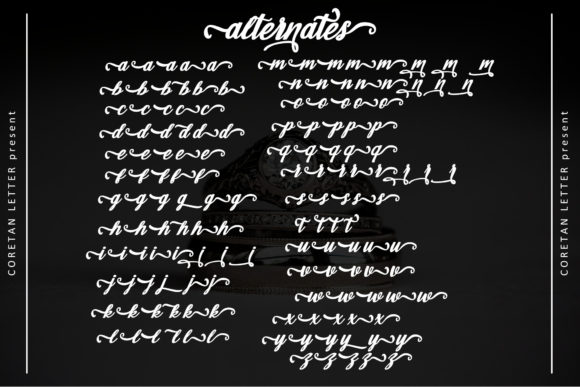 alternates
CORETAN LETTER present
a a a a a
b b b b b b
c c c c c
d d d d d d
e e e e e
f f f f f
g g g g g g
h h h h h
i i i i i i i i
j j j j j j
k k k k k k
l l l l l
m m m m m m m m m
n n n n n n n n
o o o o o
p p p p p
q q q q q
r r r r r r r r
s s s s s
t t t t
u u u u u
v v v v v
w w w w w w
x x x x x
y y y y y y
z z z z z
CORETAN LETTER present